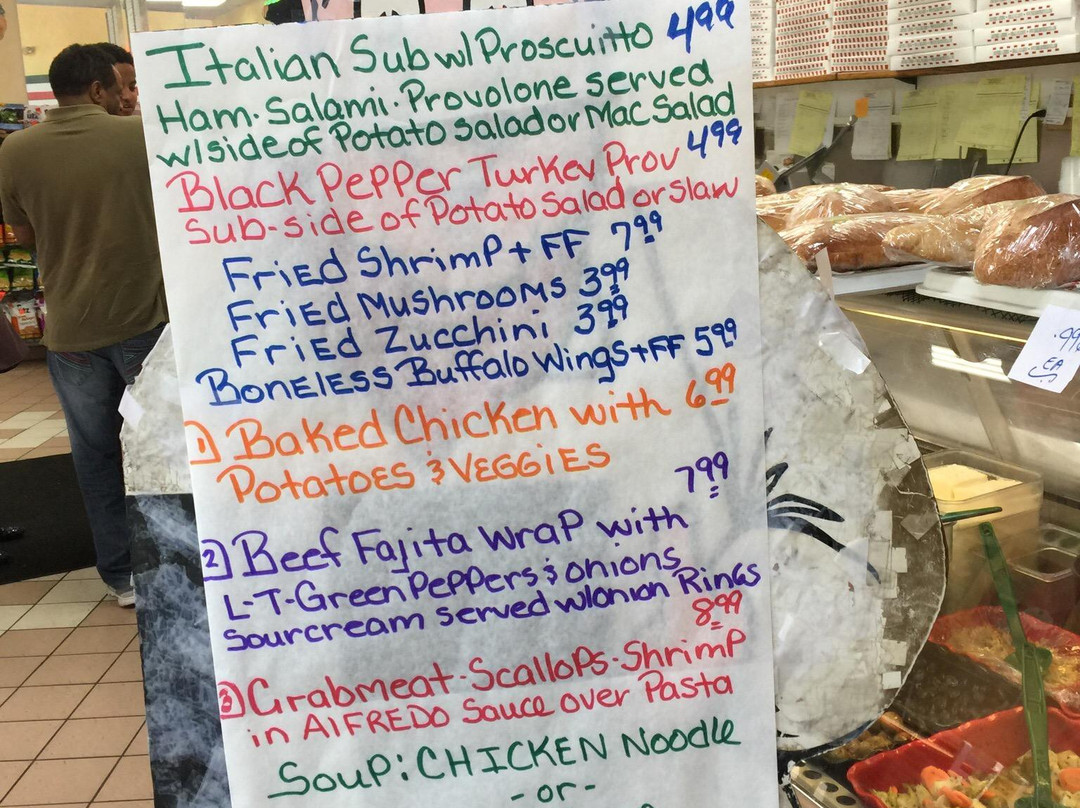 Italian Sub w/ Proscuitto 4.99
Ham. Salami. Provolone served
w/side of Potato Salad or Mac Salad
Black Pepper Turkey Prov 4.99
Sub-side of Potato Salad or slaw
Fried Shrimp + FF 7.99
Fried Mushrooms 3.99
Fried Zucchini 3.99
Boneless Buffalo Wings + FF 5.99
1) Baked Chicken with 6.99
Potatoes & Veggies
7.99
2) Beef Fajita Wrap with
L-T-Green Peppers & onions
Sourcream served w/onion Rings
8.99
3) Crabmeat-Scallops-Shrimp
in Alfredo Sauce over Pasta
Soup: CHICKEN Noodle
- or -
.99¢
EA